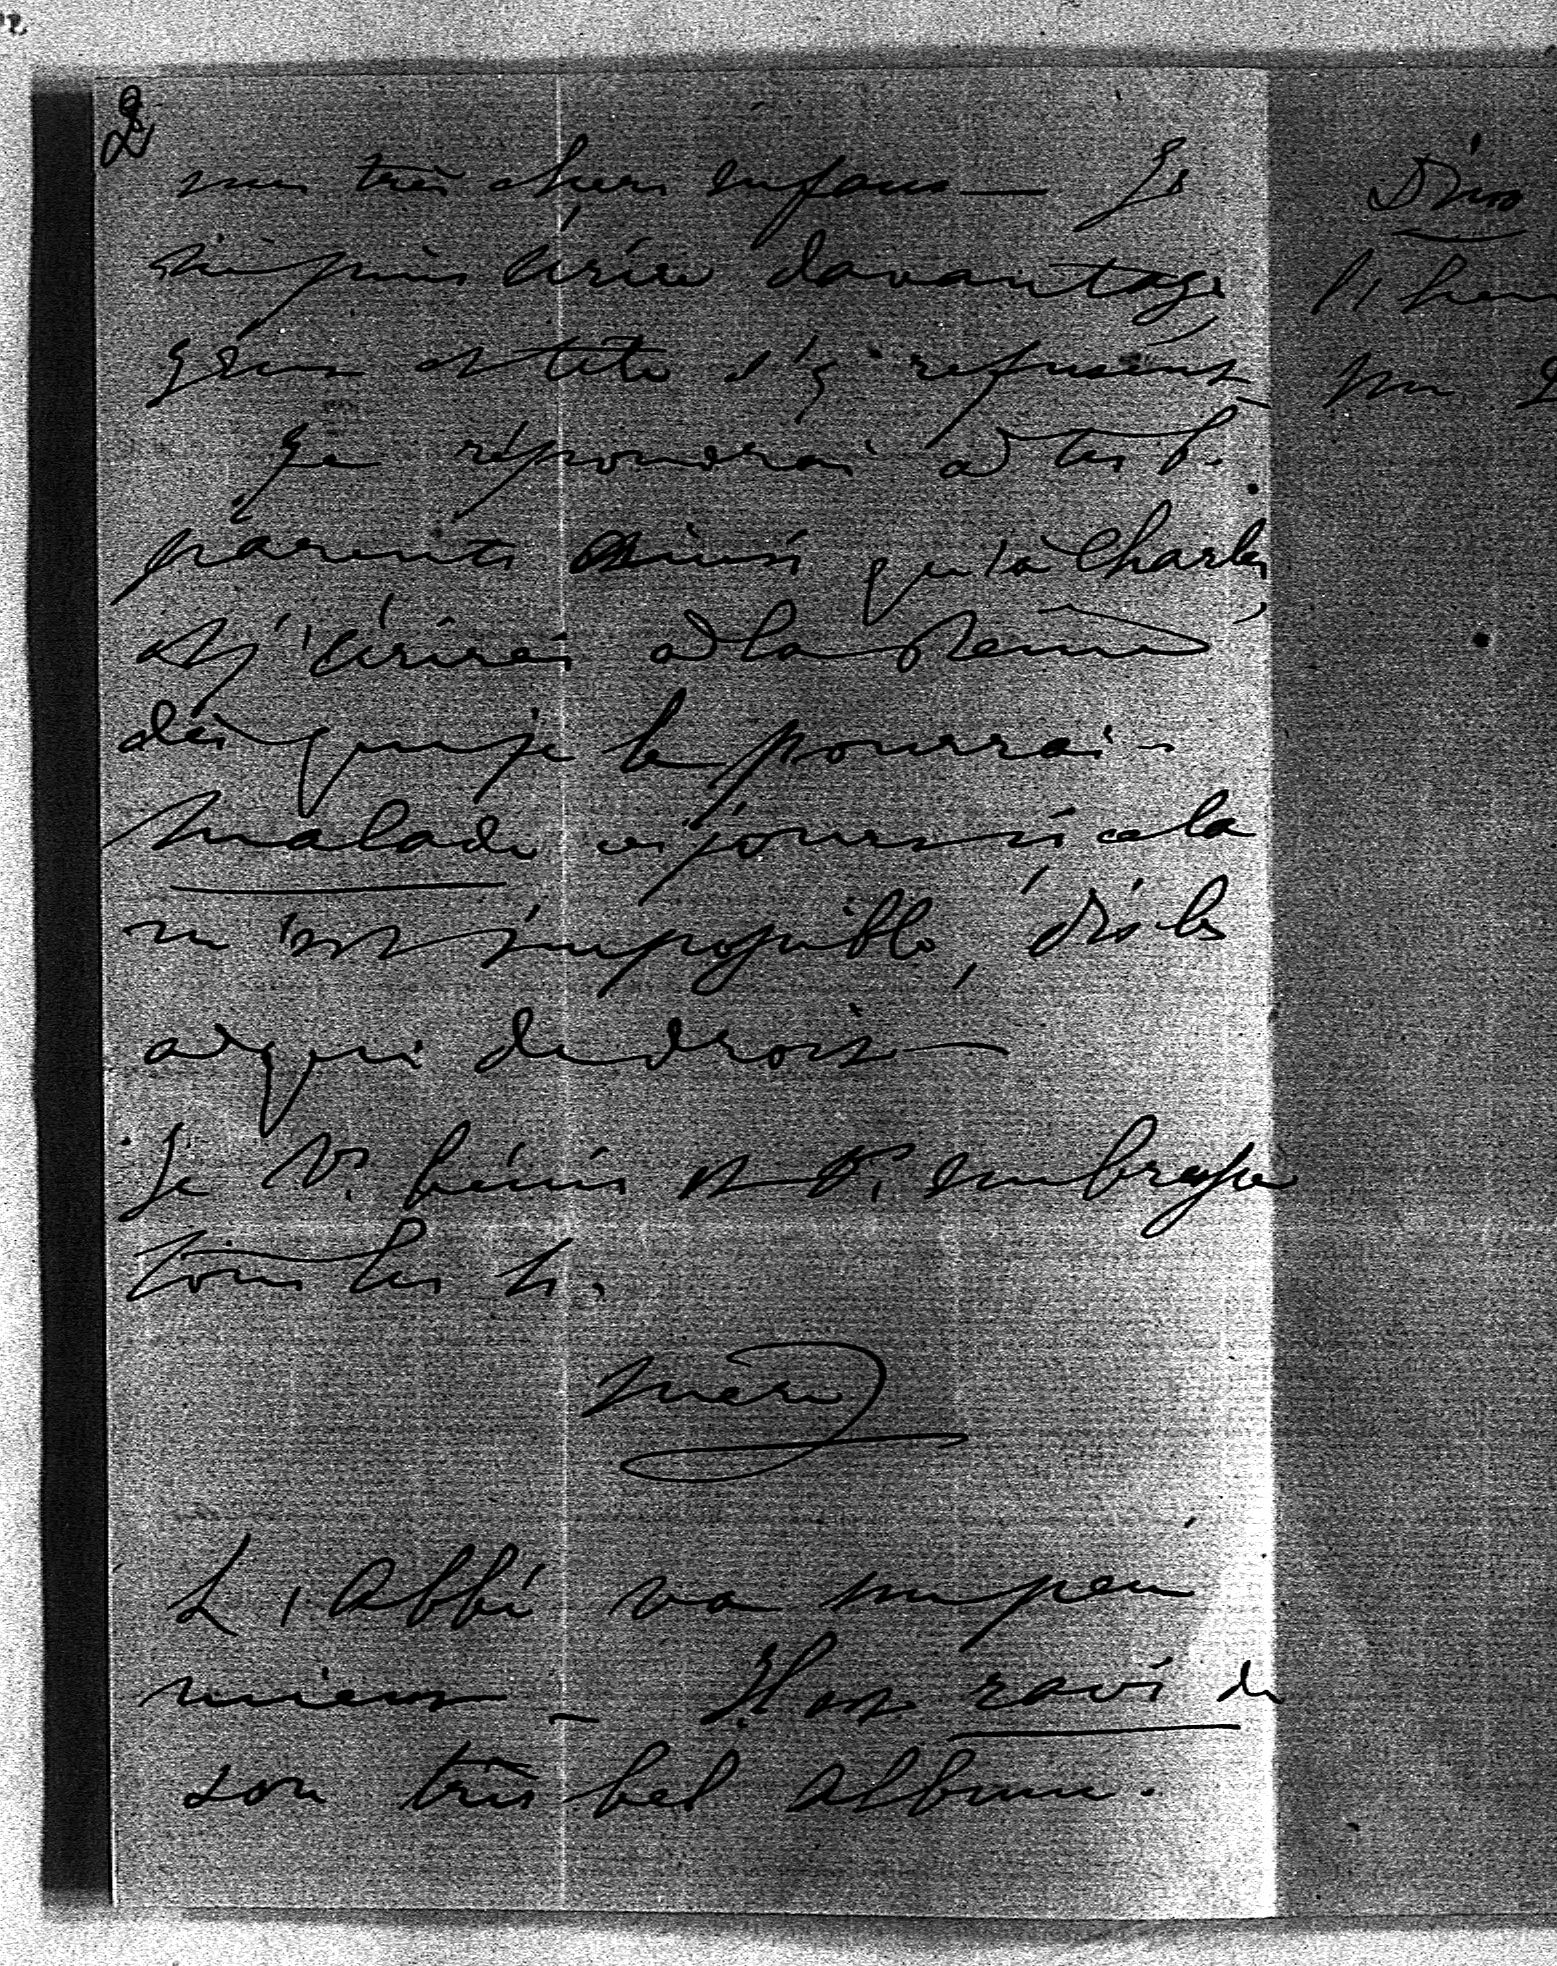 2
mes très chers enfans — Je
ne puis écrire davantage
yeux et tête s'y refusent,
Je répondrai à tes b.
parents ainsi qu'à Charles,
et j'écrirai à la Reine
dès que je le pourrai -
malade ces jours-ci cela
m'est impossible, dis-le
à qui de droit —
je V. bénis et V. embrasse
tous les
mère
L'Abbé va un peu
mieux - Il est ravi de
son très bel album.